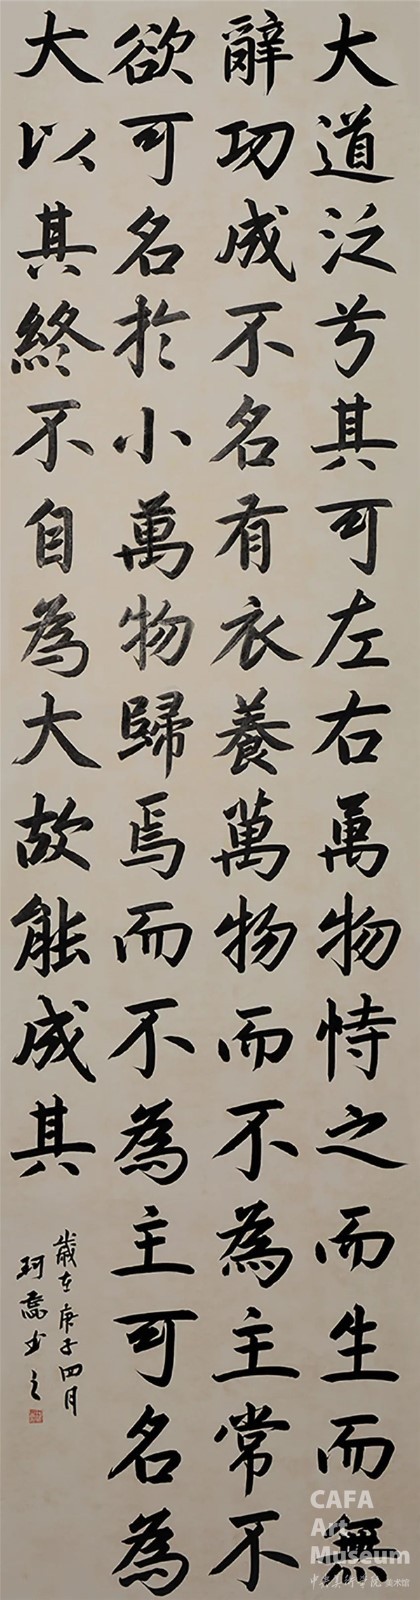 大道泛兮其可左右萬物恃之而生而無
辭功成不名有衣養萬物而不為主常不
欲可名於小萬物歸焉而不為主可名為
大以其終不自為大故能成其
歲在庚子四月
珂喬书之
CAFA
Art
Museum
中央美術學院 美术馆